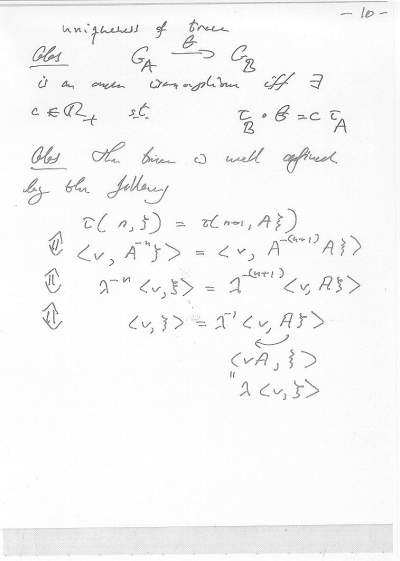 - 10 -
uniqueness of trace
Obs G_A —θ→ G_B
is an order isomorphism iff ∃
c ∈ R_+ s.t. τ_B ∘ θ = c τ_A
Obs The trace is well defined
by the following
τ(n, ξ) = τ(n+1, Aξ)
⇕ <v, A^{-n}ξ> = <v, A^{-(n+1)}Aξ>
⇕ λ^{-n} <v,ξ> = λ^{-(n+1)} <v, Aξ>
⇕ <v, ξ> = λ^{-1} <v, Aξ>
<vA, ξ>
"
λ <v, ξ>